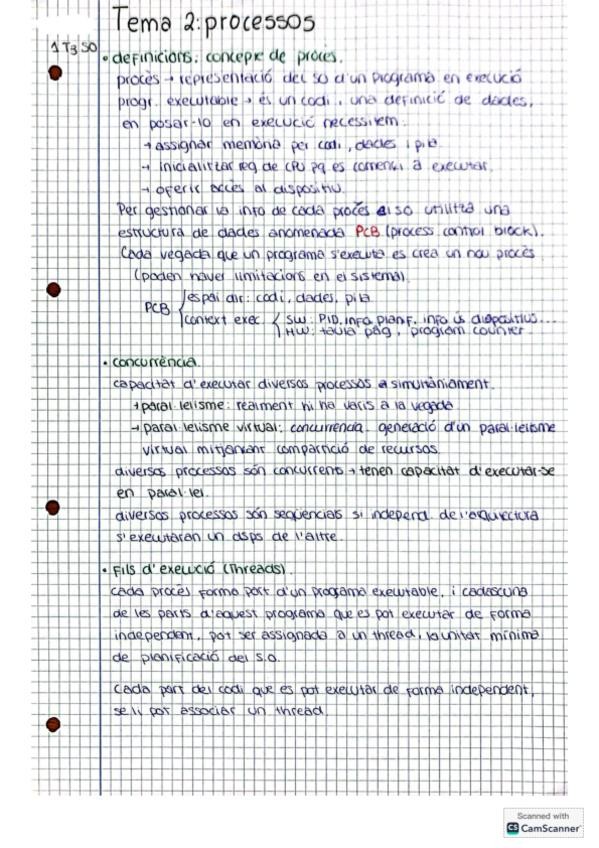 Tema 2: processos
1 T3 SO
• definicions: concepte de procés.
procés → representació del so d'un programa en execució
progr. executable → és un codi, una definició de dades,
en posar-lo en execució necessitem:
→ assignar memòria per codi, dades i pila
→ inicialitzar reg de CPU pq es comenci a executar.
→ oferir accés al dispositiu.
Per gestionar la info de cada procés el so utilitza una
estructura de dades anomenada PCB (process control block).
Cada vegada que un programa s'executa es crea un nou procés
(poden haver limitacions en el sistema).
PCB { espai dir: codi, dades, pila
context exec. { SW: PID, info planif, info ús dispositius...
HW: taula pàg, program counter
• concurrència.
capacitat d'executar diversos processos simultàniament.
→ paral·lelisme: realment hi ha varis a la vegada
→ paral·lelisme virtual: concurrència. generació d'un paral·lelisme
virtual mitjançant compartició de recursos.
diversos processos són concurrents → tenen capacitat d'executar-se
en paral·lel.
diversos processos són seqüencials si independ. de l'arquitectura
s'executaran un dsps de l'altre.
• Fils d'execució (Threads).
cada procés forma part d'un programa executable, i cadascuna
de les parts d'aquest programa que es pot executar de forma
independent, pot ser assignada a un thread, la unitat mínima
de planificació del S.O.
cada part del codi que es pot executar de forma independent,
se li pot associar un thread.
Scanned with
CS CamScanner